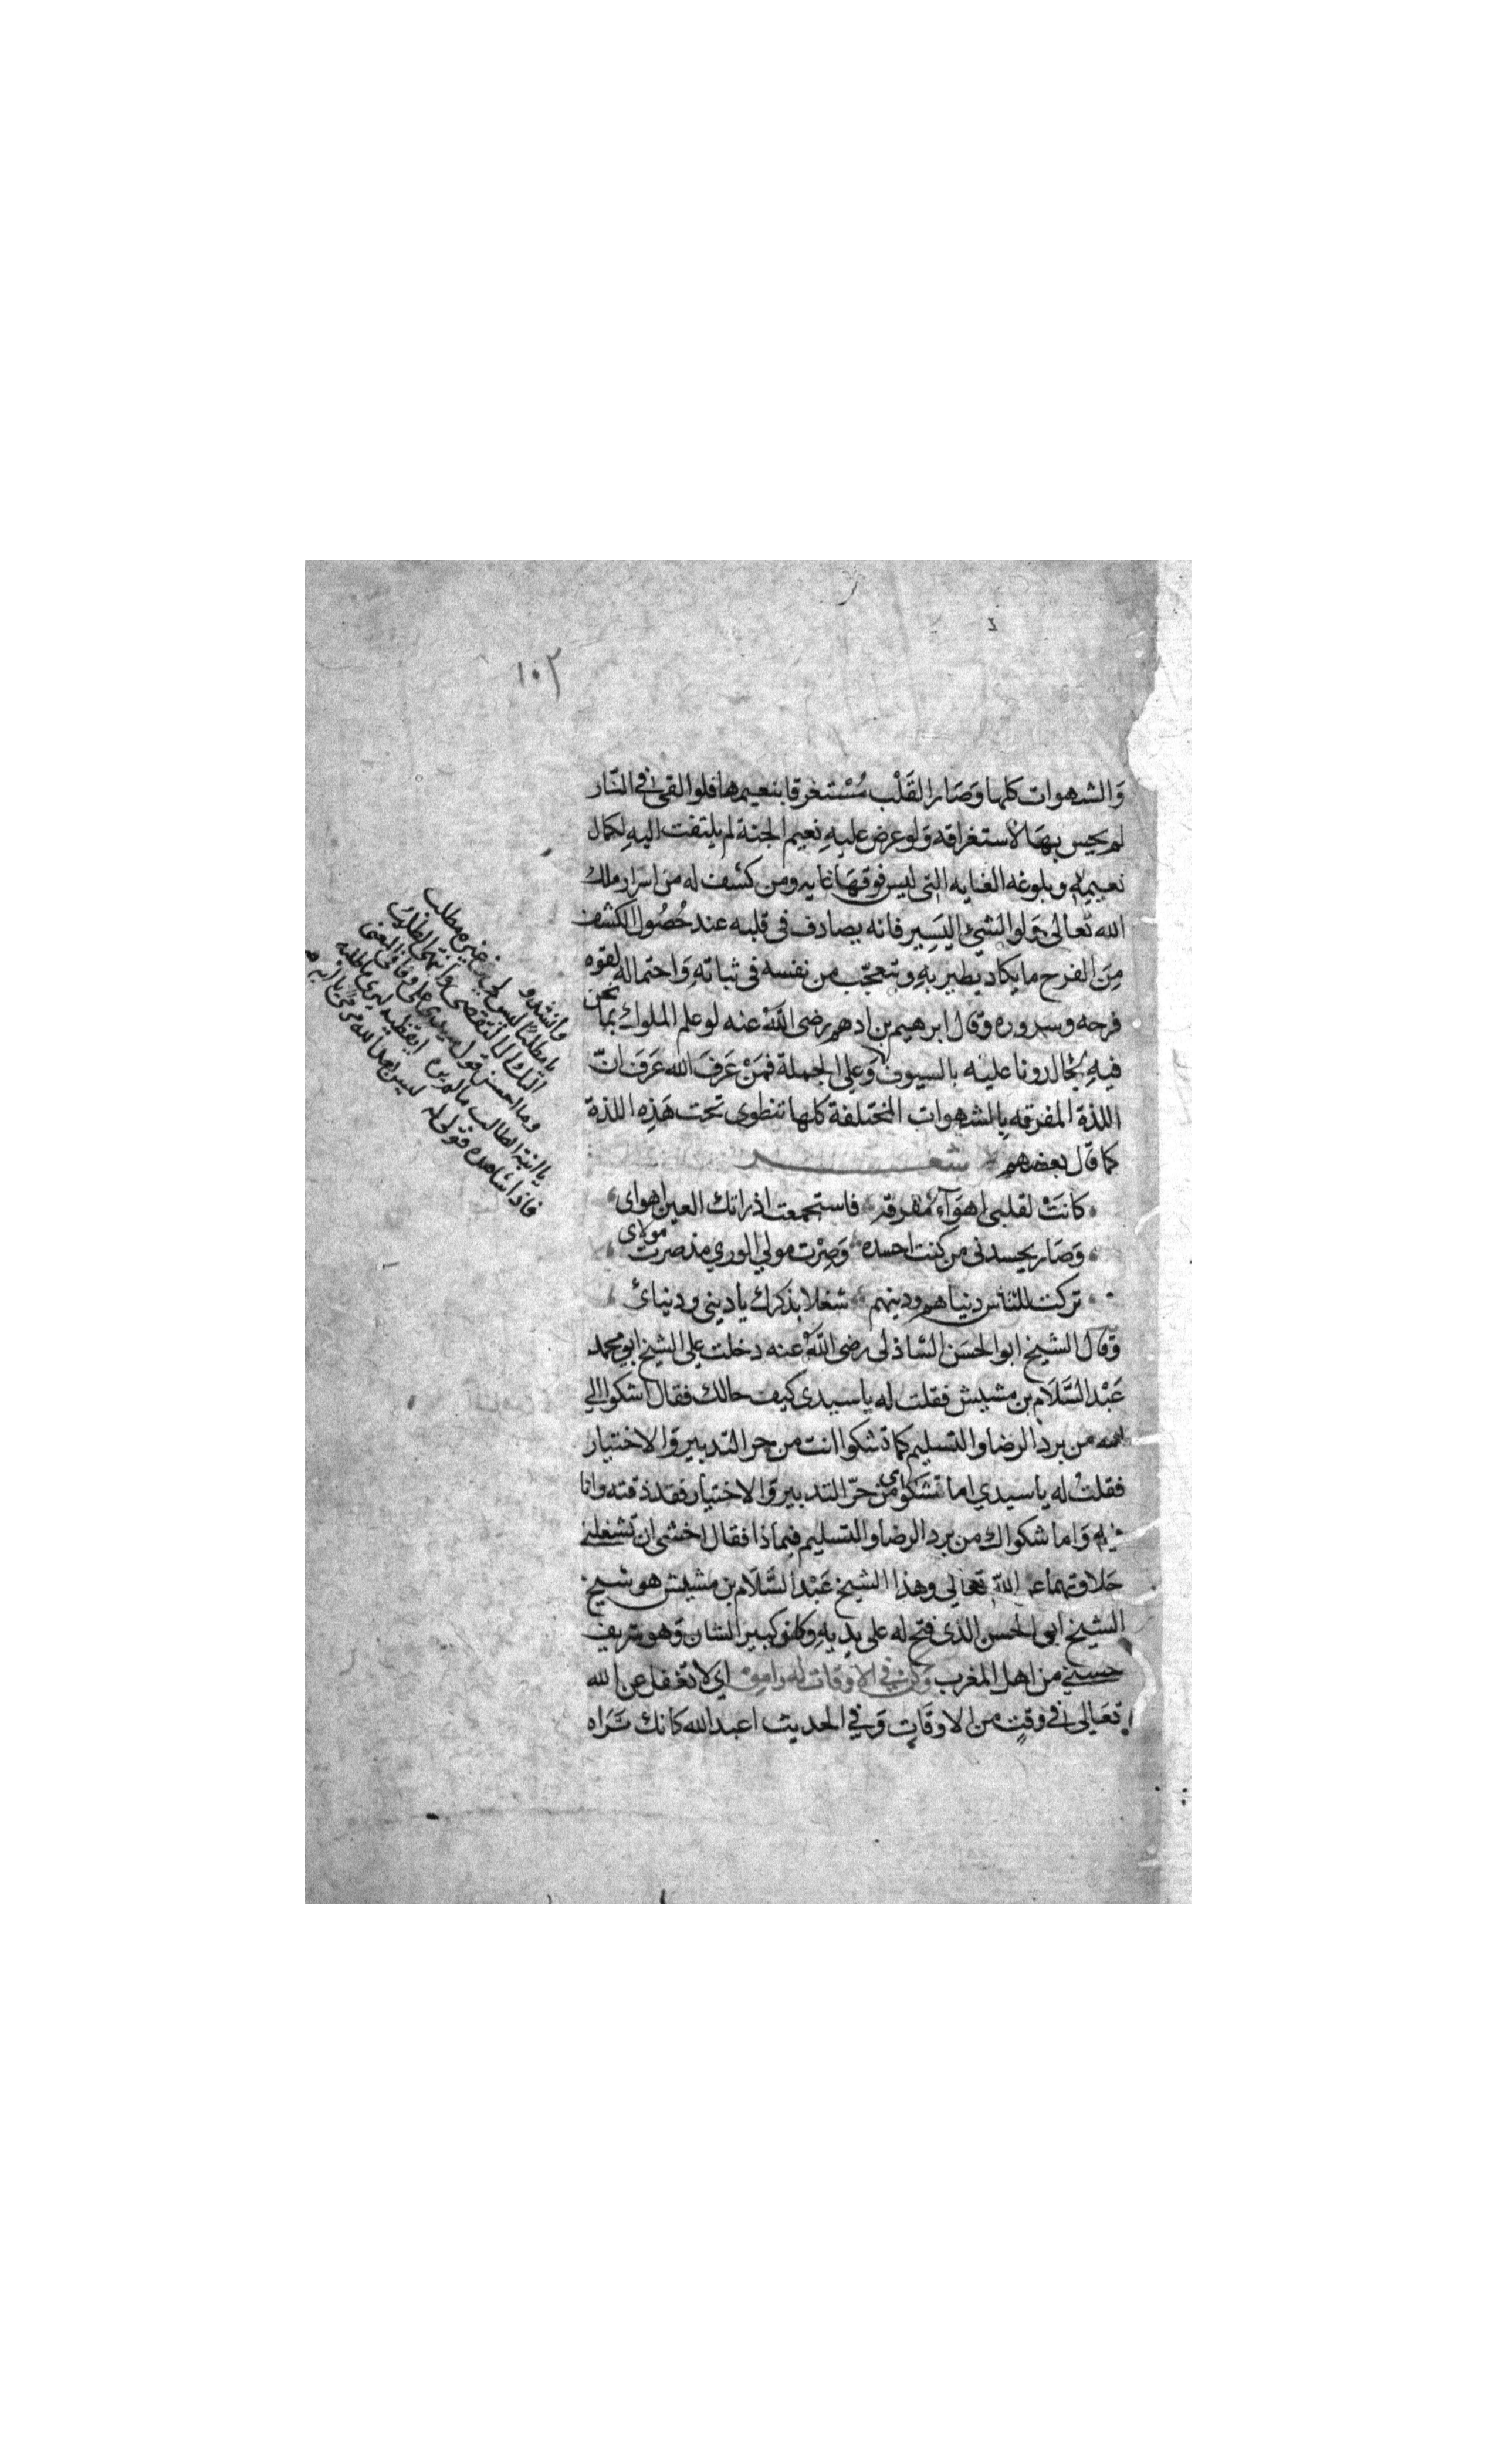 ١٠٢
وَالشهوات كلها وَصَار القَلْب مُسْتغرقا بنعيمها فلو القى في النّار
لم يحس بهَا لاستغراقه وَلو عرض عليهِ نعيم الجنة لم يلتفت اليهِ لكمال
نعيمهِ وبلوغه الغايه التي ليس فوقهَا غايه ومن كشف له من اسرار ملك
الله تعالى وَلو الشئ اليَسِير فانه يصادف فى قلبه عند حُصُول الكشف
مِنَ الفرح ما يكاد يطير بهِ ويتعجّب من نفسه فى ثباتهِ وَاحتماله لقوه
فرحه وسروره وقال ابرهيم بن ادهم رضى اللهُ عنه لو علم الملوك بما نحن
فيهِ لجالدونا عليه بالسيوف وَعلى الجملة فمَنْ عَرفَ الله عَرَفَ انّ
اللذة المفرقه بالشهوات المختلفة كلها تنطوى تحت هَذِه اللذة
كما قال بعضهم شعر
كانَتْ لقلبى اهوَآءٌ مُفرقة فاستجمعت اذ راتك العين اهواى
وَصَار يحسدنى من كنت احسده وَصِرْت مولي الوري مذ صرت مولاى
تركت للناس دنياهم ودينهم شغلا بذكرك يا دينى ودنيائ
وَقال الشيخ ابو الحسَن الشاذلى رضى اللهُ عنه دخلت على الشيخ ابو محمد
عَبْد السَّلَام بن مشيش فقلت له يا سيدى كيف حالك فقال اشكوا الي
الله من برد الرضا والتسليم كما تشكوا انت من حر التدبير وَالاختيار
فقلتُ له يا سيدي اما تشكواى من حرّ التدبير وَالاختيار فقد ذقته وانا
فيه وَاما شكواك من برد الرضا والتسليم فبماذا فقال اخشى ان تشغلنى
حَلاوتهما عن الله تعَالي وهذا الشيخ عَبْد السَّلَام بن مشيش هو شيخ
الشيخ ابى الحسن الذى فتح له على يديهِ وكان كبير الشان وَهو شريف
حسنى من اهل المغرب وَكن في الاوقات له رامق اي لا تغفل عن الله
تعَالى فى وقتٍ من الاوقَاتِ وَفي الحديث اعبد الله كانك تَراه
وانشدو
يا مطلبا ليس لى غيره مطلب
اليك ال التقصى وانتهى الطلب
وما احسن قول سيدى على وفا فى المعنى